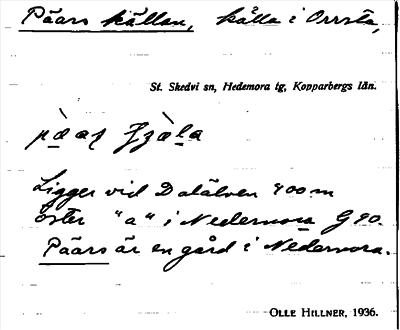 Päars källan, källa i Orrsta,
St. Skedvi sn, Hedemora tg, Kopparbergs län.
Ligger vid Dalälven 900 m
öster "a" i Nedernora G 90.
Päars är en gård i Nedernora.
OLLE HILLNER, 1936.